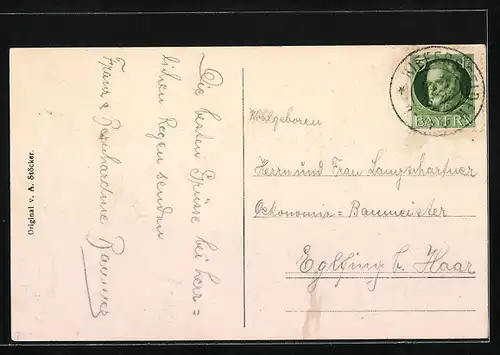 Die besten Grüsse bei herr=
lichen Regen senden
Franz & Bernhardine
Original v. A. Stöcker.
BAYERN
Wohlgeboren
Herrn und Frau Langschartner
Oekonomie=Baumeister
Eglfing b. Haar